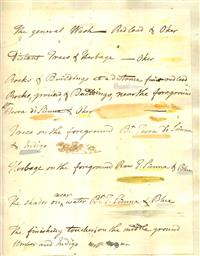 The general Wash — Red Lead & Oker
Distant Trees & Herbage — Oker
Rocks & Buildings at a distance red lead
Rocks, ground & Buildings, near the foreground
Terra di Sienna & Oker
Trees on the foreground Bt. Terra di Sienna
& Indigo
Herbage on the foreground Raw T. Sienna & Blue
near
The shades on water Bt. T. Sienna & Blue
The finishing touches in the middle ground
Umber and Indigo